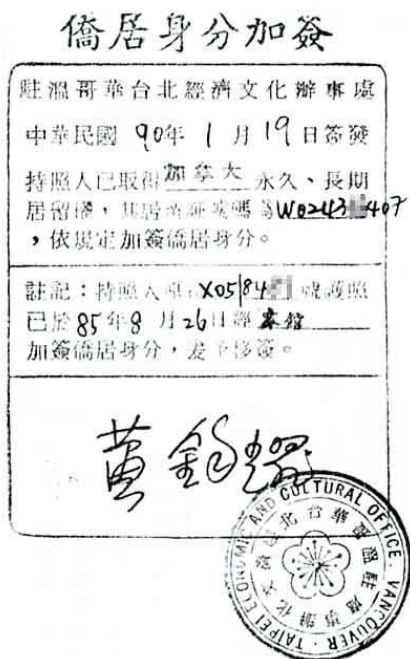 僑居身分加簽
駐溫哥華台北經濟文化辦事處
中華民國 90年 1 月 19 日簽發
持照人已取得 加拿大 永久、長期
居留權，其居留證號碼為W0243 407
，依規定加簽僑居身分。
註記：持照人原 X05184 號護照
已於 85年8 月 26日經 本館
加簽僑居身分，茲予移簽。
TAIPEI ECONOMIC AND CULTURAL OFFICE, VANCOUVER
駐溫哥華台北經濟文化辦事處